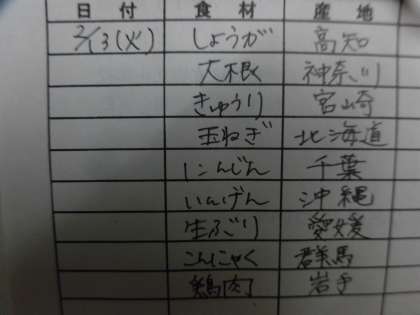 日付 食材 産地
2/13(火) しょうが 高知
大根 神奈川
きゅうり 宮崎
玉ねぎ 北海道
にんじん 千葉
いんげん 沖縄
生ぶり 愛媛
こんにゃく 群馬
鶏肉 岩手